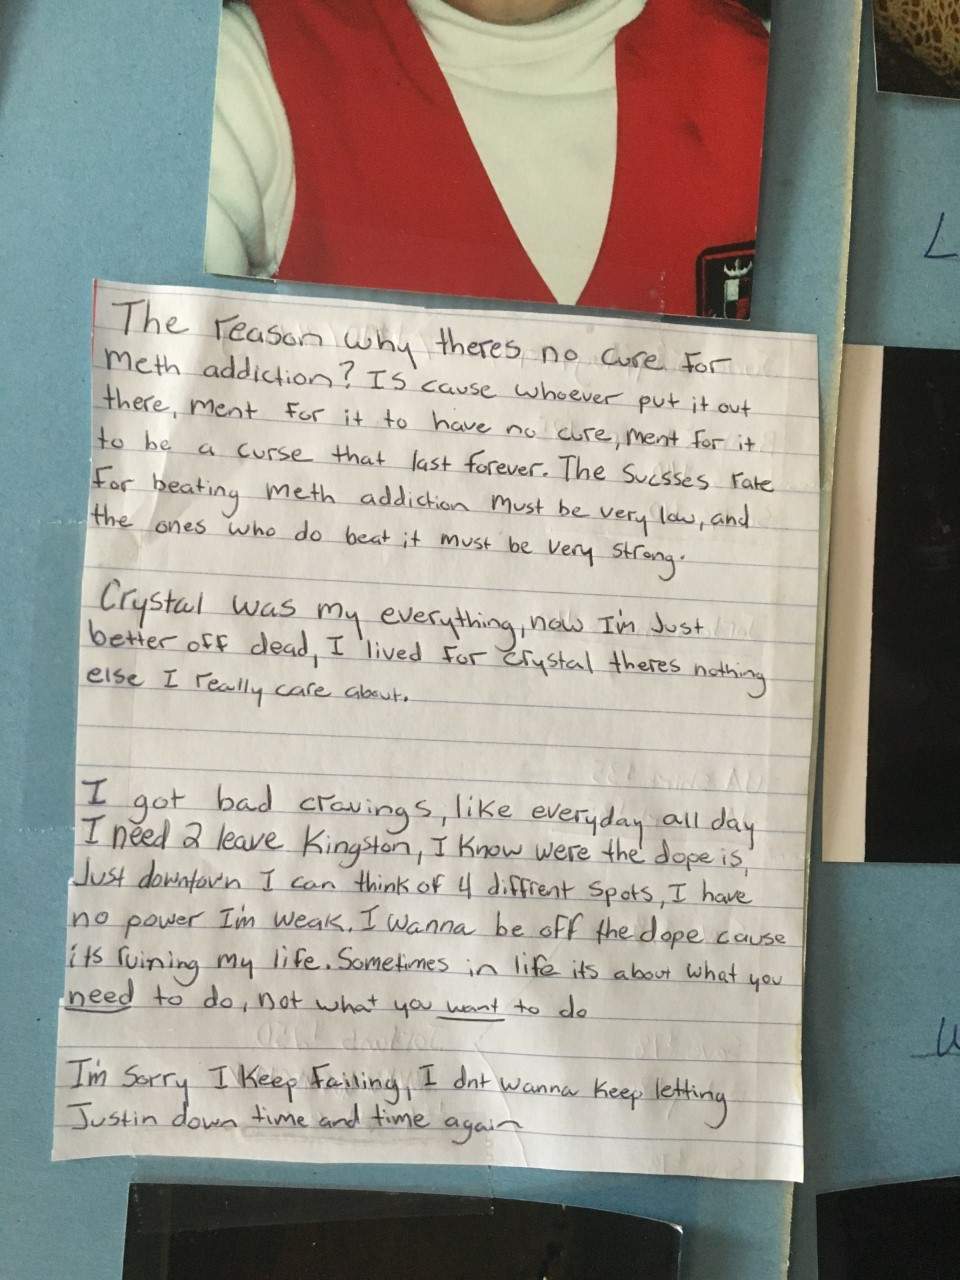 The reason why theres no cure for
meth addiction? Is cause whoever put it out
there, ment for it to have no cure, ment for it
to be a curse that last forever. The Sucsses rate
for beating meth addiction must be very low, and
the ones who do beat it must be very strong.
Crystal was my everything, now I'm Just
better off dead, I lived for crystal theres nothing
else I really care about.
I got bad cravings, like everyday all day
I need 2 leave Kingston, I know were the dope is,
Just downtown I can think of 4 diffrent spots, I have
no power I'm weak. I wanna be off the dope cause
its ruining my life. Sometimes in life its about what you
need to do, not what you want to do
I'm Sorry I keep failing, I dnt wanna keep letting
Justin down time and time again
L